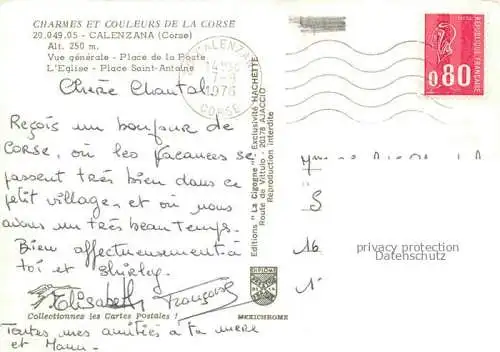 CHARMES ET COULEURS DE LA CORSE
20.049.05 - CALENZANA (Corse)
Alt. 250 m.
Vue générale - Place de la Poste
L'Eglise - Place Saint-Antoine
CALENZANA
7-9
1976
CORSE
REPUBLIQUE FRANÇAISE
0,80
Chère Chantal
Reçois un bonjour de
CORSE, où les vacances se
passent très bien dans ce
petit village et où nous
avons un très beau temps.
Bien affectueusement à
toi et Shirley
Elisabeth Françoise
Collectionnez les Cartes Postales !
MEXICHROME
Toutes mes amitiés à ta mère
et Manu.
Editions "La Cigogne" - Exclusivité HACHETTE
Route de Vittulo - 20178 AJACCIO
Reproduction interdite
S
16
privacy protection
Datenschutz